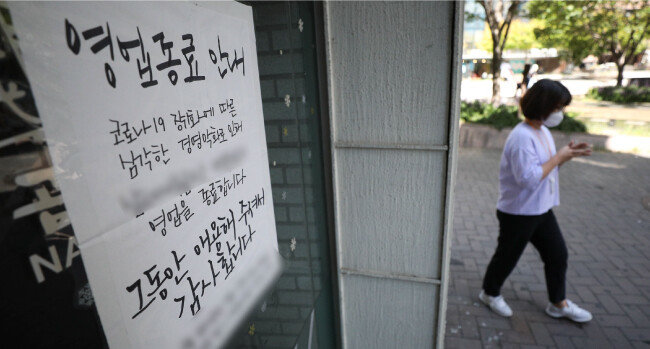 영업종료 안내
코로나-19 장기화에 따른
심각한 경영악화로 인해
영업을 종료합니다
그동안 애용해 주셔서
감사합니다
NA